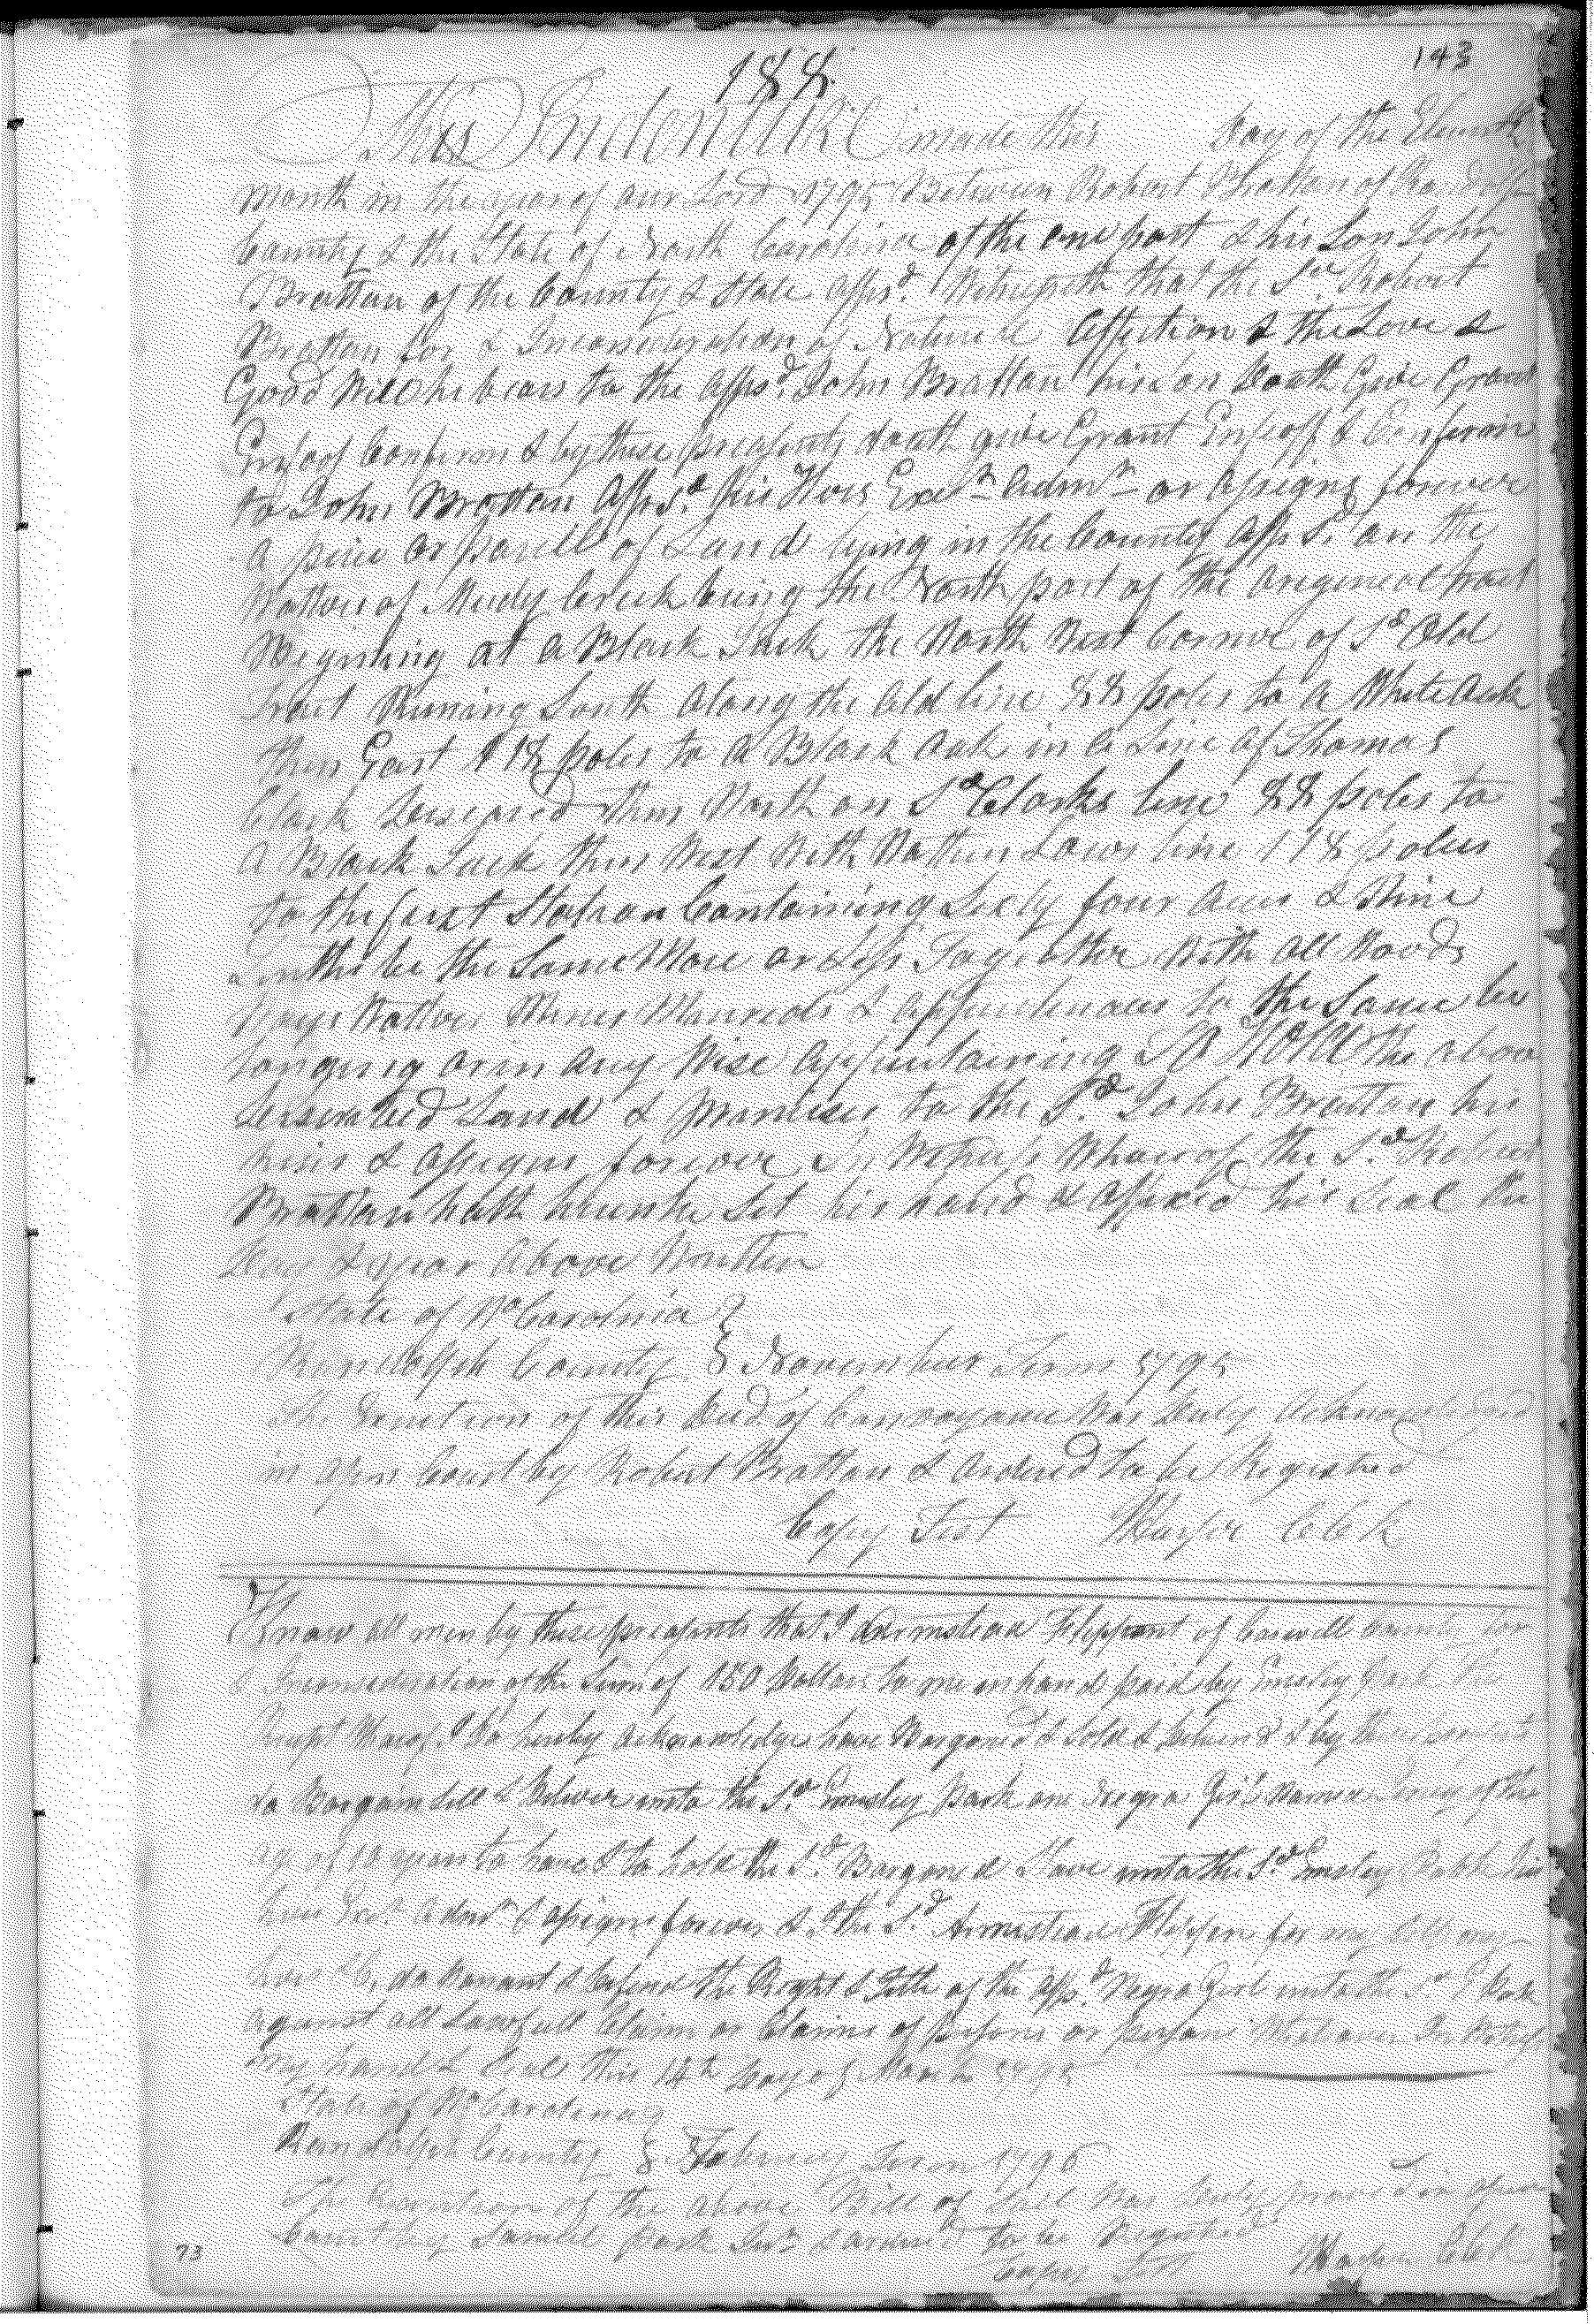 188
143
This Indenture made this Day of the Eleventh
Month in the year of our Lord 1795 Between Robert Brattan of
County & the State of North Carolina of the one part & his Son John
Brattan of the County & State affsd. Witnesseth that the Sd. Robert
Brattan for & Inconsideration of Natural affection & the Love &
Good Will he bears to the affsd. John Brattan his Son Doath Give Grant
Confirm & by these presents doath give Grant Enfeoff & Confirm
to John Brattan Affsd. his Heirs Exrs. Admrs. or assigns forever
a piece or parcell of Land lying in the County affsd. on the
Watters of Mudy Creek being the North part of the original tract
Begining at a Black Jack the North West Corner of Sd Old
tract Runing South along the Old line 88 poles to a White oak
then East 118 poles to a Black oak in a Line of Thomas
Clark Deceased then North on Sd Clarks line 88 poles to
a Black Jack then West With Laws line 118 poles
to the first Station Containing Sixty four acres & Nine
tenths be the Same More or Less Together With all Woods
Ways Watters Mines Minerals & appurtenances to the Same be
longing or in any Wise appertaining To Hold the above
described Land & premises to the Sd. John Brattan his
heirs & assigns forever In Witness Whareof the Sd. Robert
Brattan hath hereunto Set his hand & affixed his Seal the
Day & year above Written
State of No Carolina }
Randolph County } November Term 1795
The Execution of this Deed of Conveyance Was Duly Acknowledged
in open Court by Robert Brattan & ordered to be Registred
Copy Test Harper CCk
Know all men by these presents that I Armstead Flippent of Caswell County for
& Inconsideration of the Sum of 150 Dollars to me in hand paid by Emsley Park the
receipt Whareof I do hereby acknowledge have Bargoned & Sold & Deliver'd & by these presents
do Bargain Sell & Deliver unto the Sd. Emsley Park one Negro Girl Named of the
age of 10 years to have & to hold the Sd. Bargoned Slave unto the Sd. Emsley Park his
heirs Exrs. Admrs. & assigns forever & I the Sd. Armstead Flippen for my Self my
heirs &c, do Warrant & Defend the Right & Title of the affsd. Negro Girl unto the Sd E Park
against all Lawfull Claim or Claims of person or persons Whatsoever In Witness
my hand & Seal this 14th Day of March 1795
State of No Carolina }
Randolph County } February Term 1796
The Execution of the above Bill of Sale Was Duly proved in open
Court by Samuel Park Junr & ordered to be Registred
Copy Test Harper CCk
73